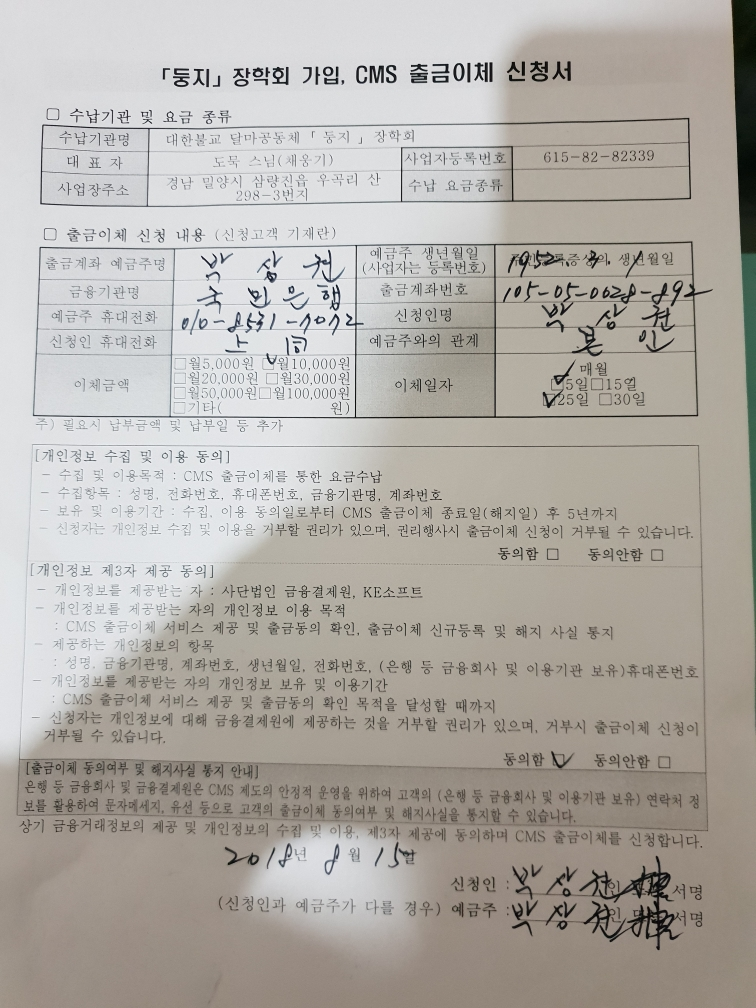 「둥지」 장학회 가입, CMS 출금이체 신청서
□ 수납기관 및 요금 종류
수납기관명 대한불교 달마공동체「 둥지 」장학회
대 표 자 도묵 스님(채웅기) 사업자등록번호 615-82-82339
사업장주소 경남 밀양시 삼량진읍 우곡리 산 298-3번지 수납 요금종류
□ 출금이체 신청 내용 (신청고객 기재란)
출금계좌 예금주명 박 상 권 예금주 생년월일 (사업자는 등록번호) 1952. 3. 1 생년월일
금융기관명 국민은행 출금계좌번호 105-05-0028-892
예금주 휴대전화 010-8531-7072 신청인명 박 상 권
신청인 휴대전화 上 同 예금주와의 관계 본 인
이체금액 □월5,000원 ☑월10,000원 이체일자 매월
□월20,000원 □월30,000원 ☑5일□15일
□월50,000원□월100,000원 ☑25일 □30일
□기타( 원)
주) 필요시 납부금액 및 납부일 등 추가
[개인정보 수집 및 이용 동의]
- 수집 및 이용목적 : CMS 출금이체를 통한 요금수납
- 수집항목 : 성명, 전화번호, 휴대폰번호, 금융기관명, 계좌번호
- 보유 및 이용기간 : 수집, 이용 동의일로부터 CMS 출금이체 종료일(해지일) 후 5년까지
- 신청자는 개인정보 수집 및 이용을 거부할 권리가 있으며, 권리행사시 출금이체 신청이 거부될 수 있습니다.
동의함 □ 동의안함 □
[개인정보 제3자 제공 동의]
- 개인정보를 제공받는 자 : 사단법인 금융결제원, KE소프트
- 개인정보를 제공받는 자의 개인정보 이용 목적
: CMS 출금이체 서비스 제공 및 출금동의 확인, 출금이체 신규등록 및 해지 사실 통지
- 제공하는 개인정보의 항목
: 성명, 금융기관명, 계좌번호, 생년월일, 전화번호, (은행 등 금융회사 및 이용기관 보유)휴대폰번호
- 개인정보를 제공받는 자의 개인정보 보유 및 이용기간
: CMS 출금이체 서비스 제공 및 출금동의 확인 목적을 달성할 때까지
- 신청자는 개인정보에 대해 금융결제원에 제공하는 것을 거부할 권리가 있으며, 거부시 출금이체 신청이
거부될 수 있습니다.
동의함 ☑ 동의안함 □
[출금이체 동의여부 및 해지사실 통지 안내]
은행 등 금융회사 및 금융결제원은 CMS 제도의 안정적 운영을 위하여 고객의 (은행 등 금융회사 및 이용기관 보유) 연락처 정
보를 활용하여 문자메세지, 유선 등으로 고객의 출금이체 동의여부 및 해지사실을 통지할 수 있습니다.
상기 금융거래정보의 제공 및 개인정보의 수집 및 이용, 제3자 제공에 동의하며 CMS 출금이체를 신청합니다.
2018년 8월 15일
신청인 : 박 상 권 인 서명
(신청인과 예금주가 다를 경우) 예금주 : 박 상 권 인 서명